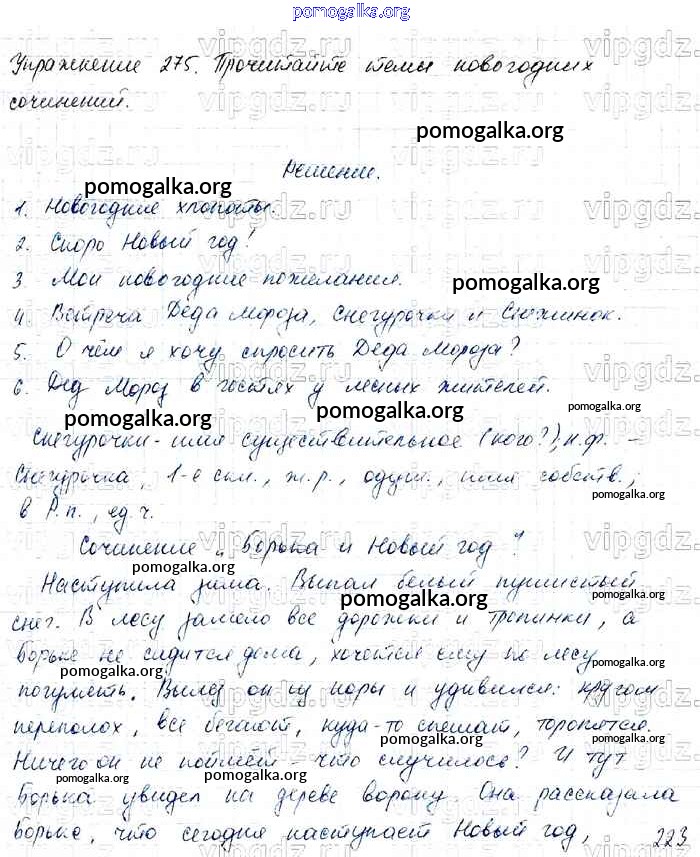 pomogalka.org
Упражнение 275. Прочитайте темы новогодних
сочинений.
pomogalka.org
Решение.
pomogalka.org
1. Новогодние хлопоты.
2. Скоро Новый год!
3. Мои новогодние пожелания.
pomogalka.org
4. Встреча Деда Мороза, Снегурочки и Снежинок.
5. О чём я хочу спросить Деда Мороза?
6. Дед Мороз в гостях у лесных жителей.
pomogalka.org
pomogalka.org
Снегурочки - имя существительное (кого?), н.ф. -
Снегурочка, 1-е скл., ж.р., одуш., имя собств.,
pomogalka.org
в Р.п., ед.ч.
Сочинение „Борька и Новый год"
pomogalka.org
Наступила зима. Выпал белый пушистый
pomogalka.org
снег. В лесу замело все дорожки и тропинки, а
Борьке не сидится дома, хочется ему по лесу
pomogalka.org
pomogalka.org
погулять. Вылез он из норы и удивился: кругом
переполох, все бегают, куда-то спешат, торопятся.
Ничего он не поймёт - что случилось? И тут
pomogalka.org
pomogalka.org
Борька увидел на дереве ворону. Она рассказала
Борьке, что сегодня наступает Новый год,
pomogalka.org
223
vipgdz.ru